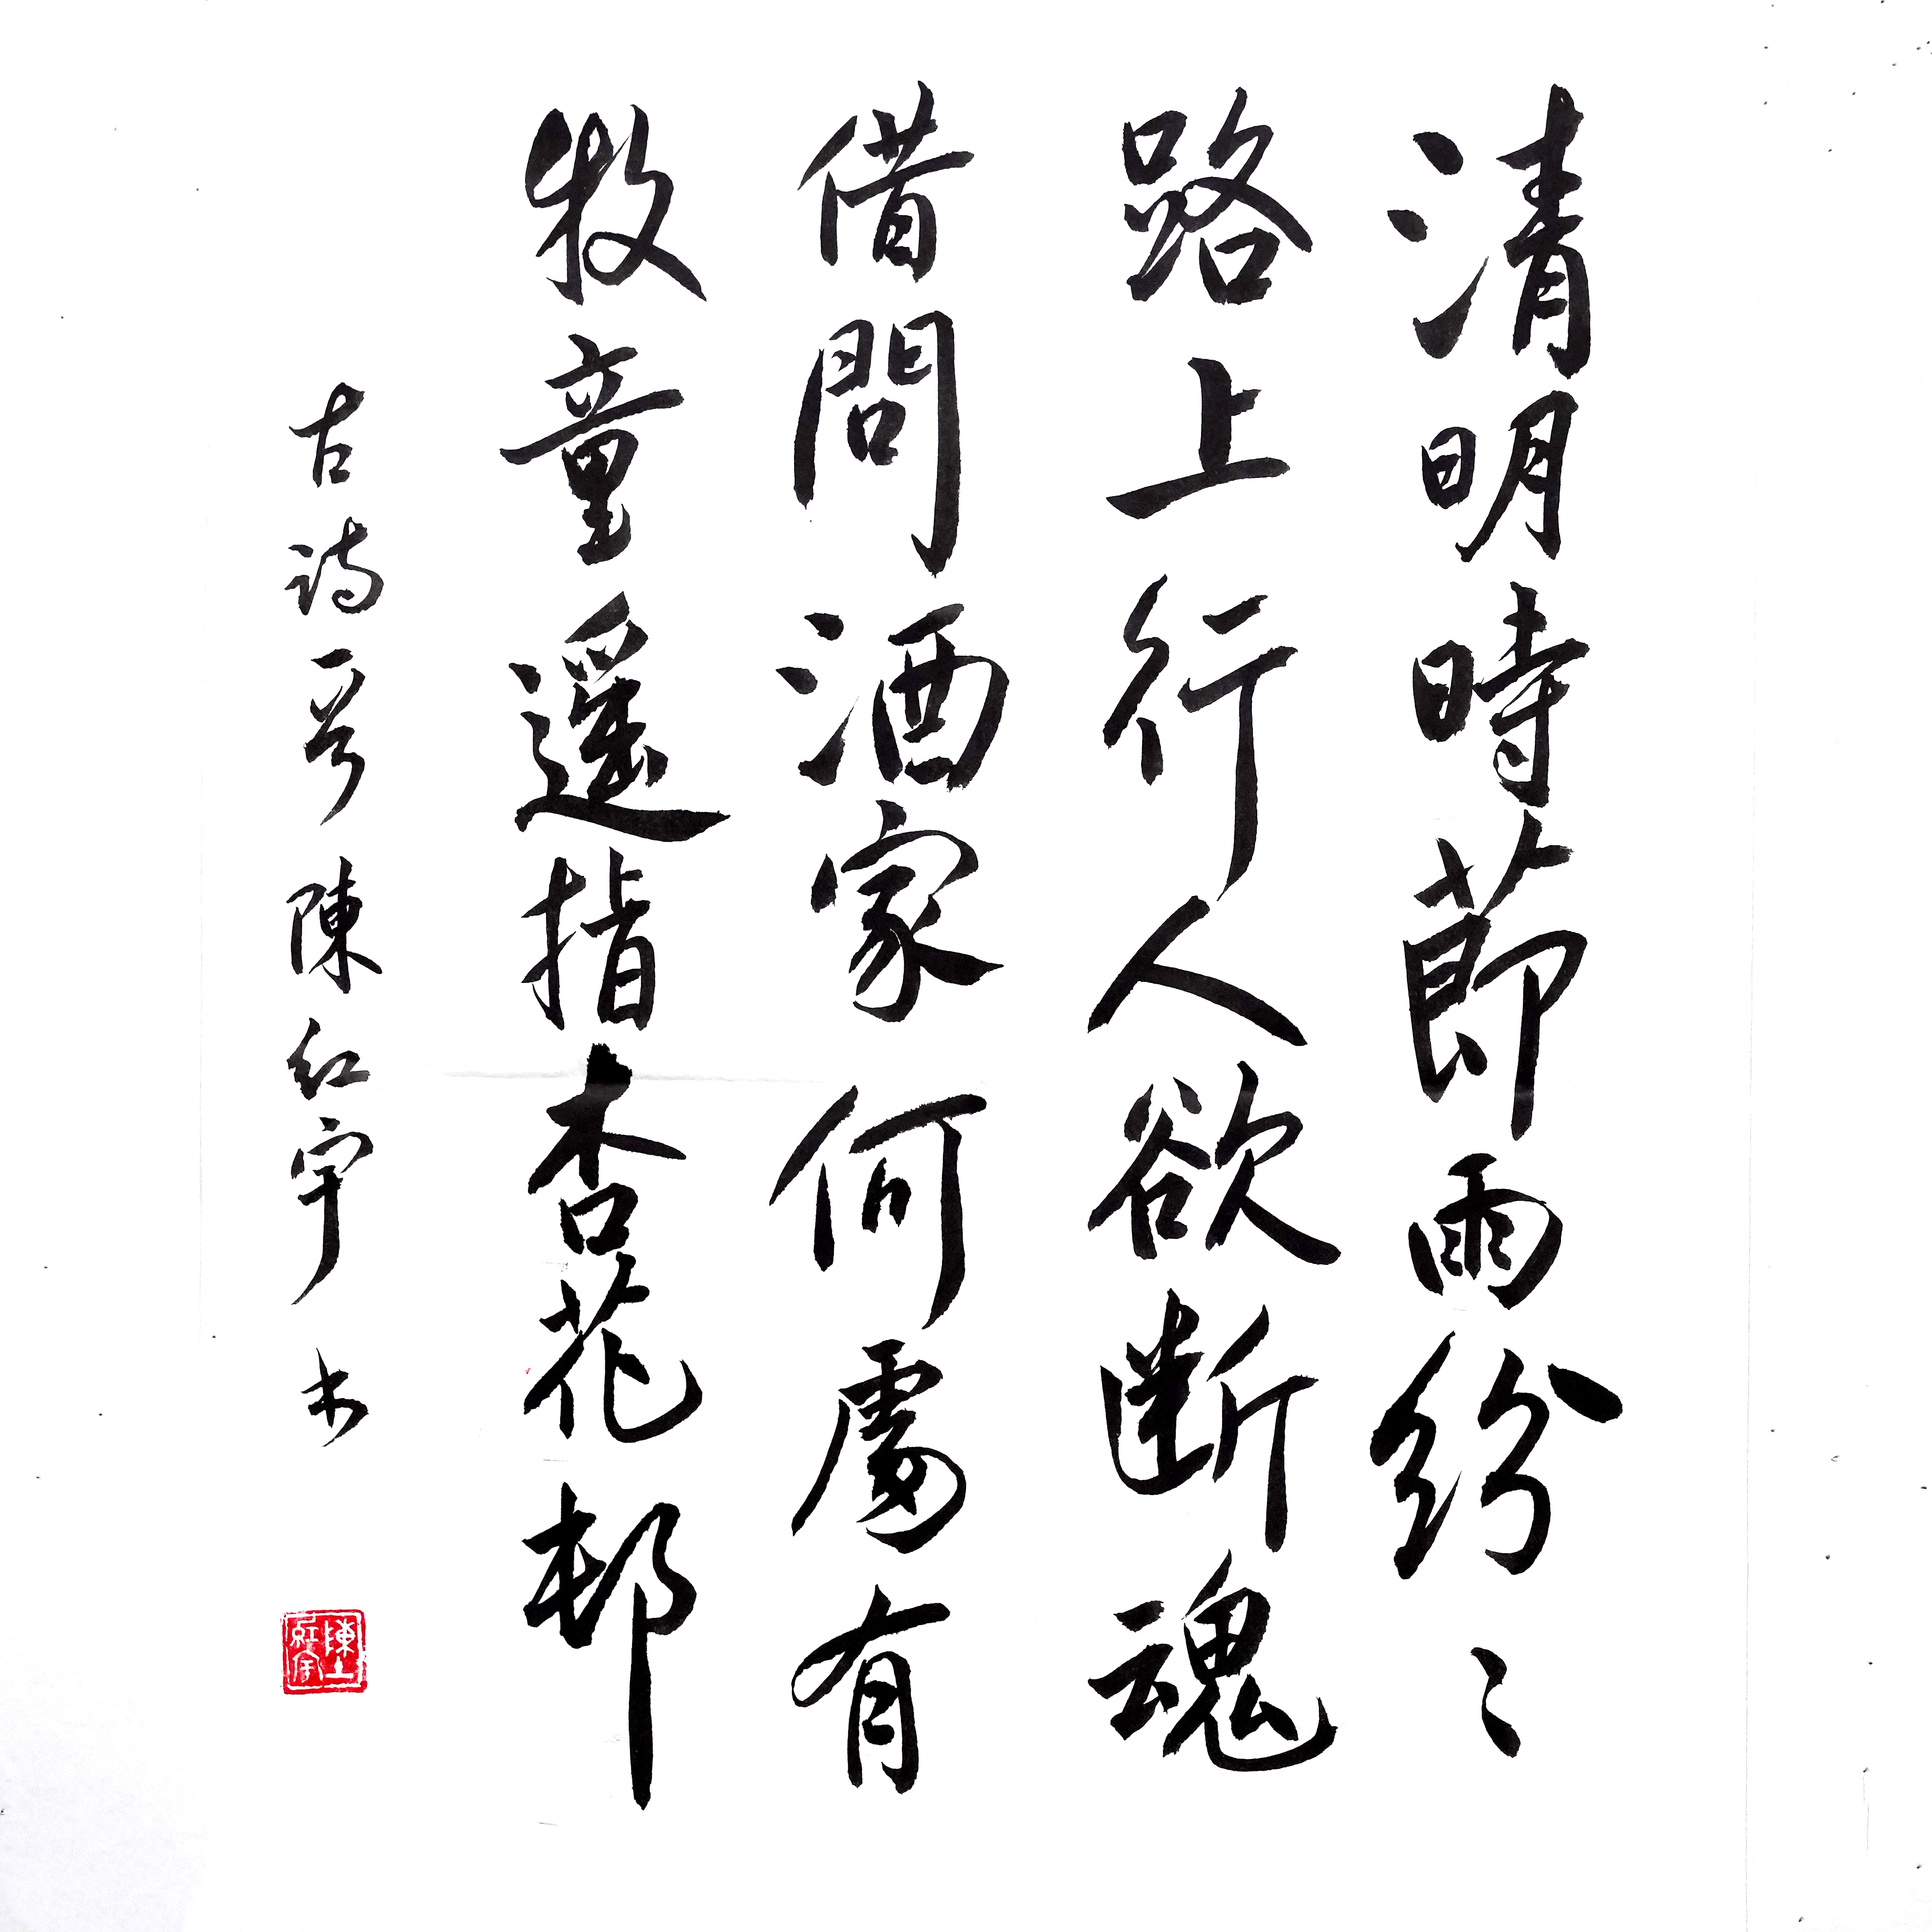 清明時節雨紛〻
路上行人欲断魂
借問酒家何處有
牧童遥指杏花邨
古诗一首 陳红宇书
陳紅宇